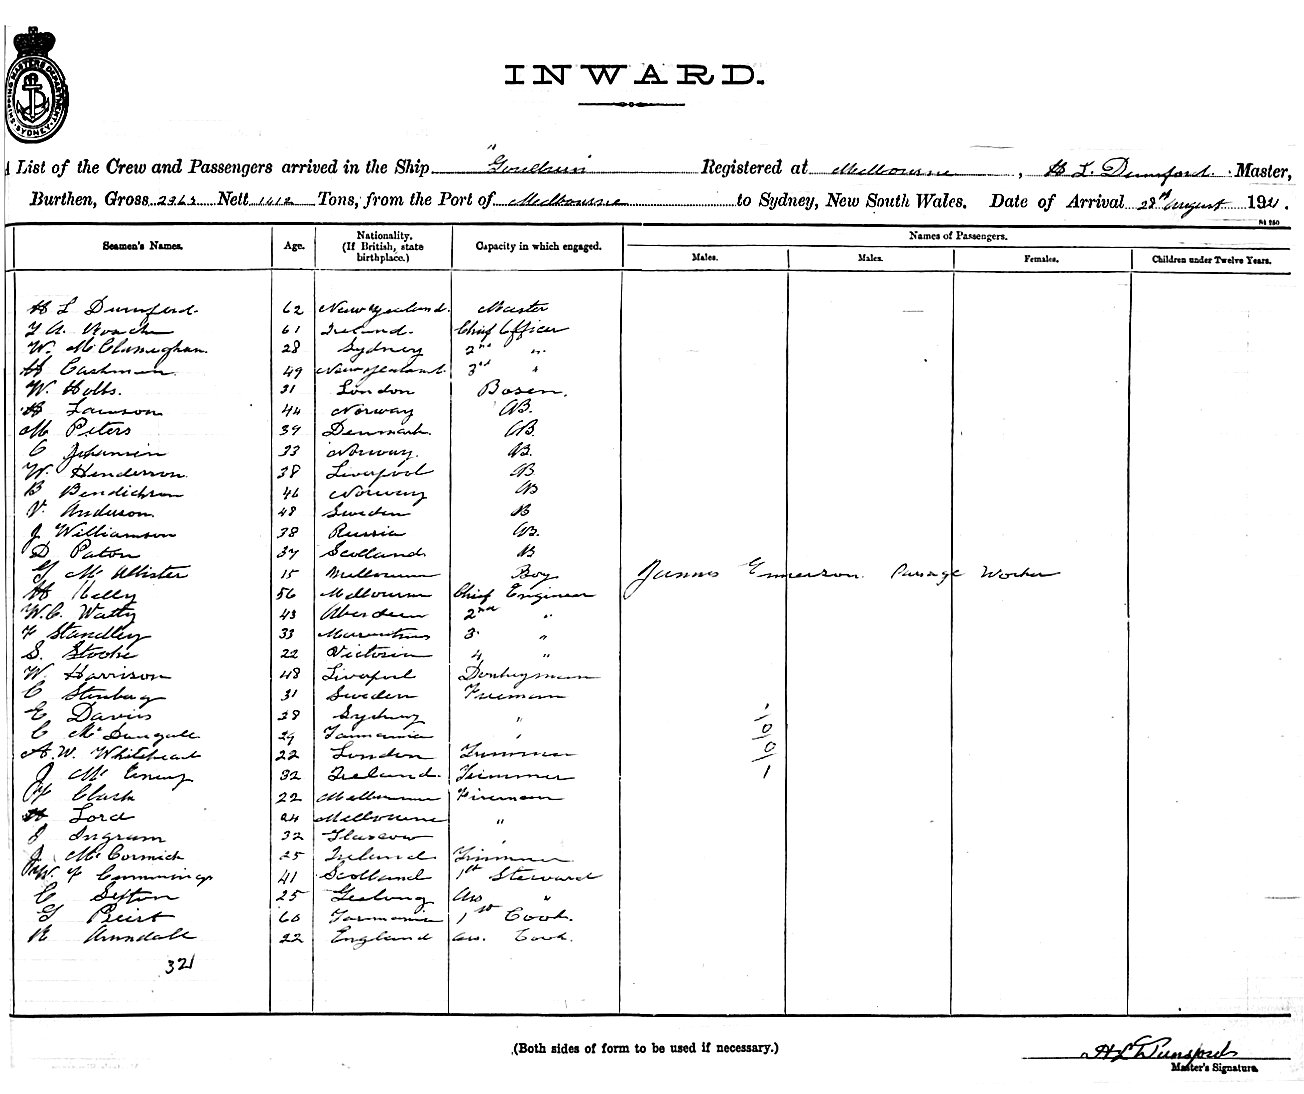 SHIPPING MASTERS DEPARTMENT SYDNEY
INWARD.
List of the Crew and Passengers arrived in the Ship Registered at Melbourne, H L Dunsford. Master,
Burthen, Gross Nett 1412 Tons, from the Port of Melbourne to Sydney, New South Wales. Date of Arrival 28th August 192
Seamen's Names. Age. Nationality. (If British, state birthplace.) Capacity in which engaged. Names of Passengers.
Males. Males. Females. Children under Twelve Years.
H L Dunsford. 62 New Zealand. Master
A. Roach 61 Ireland. Chief Officer
W. 28 Sydney 2nd "
H Cashman 49 New Zealand 3rd "
W. Hobbs. 31 London Bosen.
H 44 Norway AB.
M Peters 39 Denmark. AB.
C 33 Norway. AB.
W. Henderson 38 Liverpool AB
B 46 Norway AB
V. Anderson. 48 Sweden AB
J Williamson 38 Russia AB.
D Paton 37 Scotland AB
G McAllister 15 Melbourne Boy James Emmerson. Passage Worker
H Kelly 56 Melbourne Chief Engineer
W.C. Watty 43 Aberdeen 2nd "
F Standley 33 3 "
S. Stooke 22 Victoria 4 "
W. Harrison 48 Liverpool Donkeyman
C Stenberg 31 Sweden Fireman
E Davis 28 Sydney "
C McDougall 29 Tasmania "
A.W. Whitehead 22 London Trimmer
J 32 Ireland. Trimmer
Clark 22 Melbourne Fireman
H Lord 24 Melbourne "
J Ingram 32 Glasgow "
J. McCormick 25 Ireland Trimmer
W. F Cummings 41 Scotland 1st Steward
C Sefton 25 Geelong Ass "
G 60 Tasmania 1st Cook.
R Arundale 22 England Ass. Cook.
321
(Both sides of form to be used if necessary.)
H L Dunsford
Master's Signature.